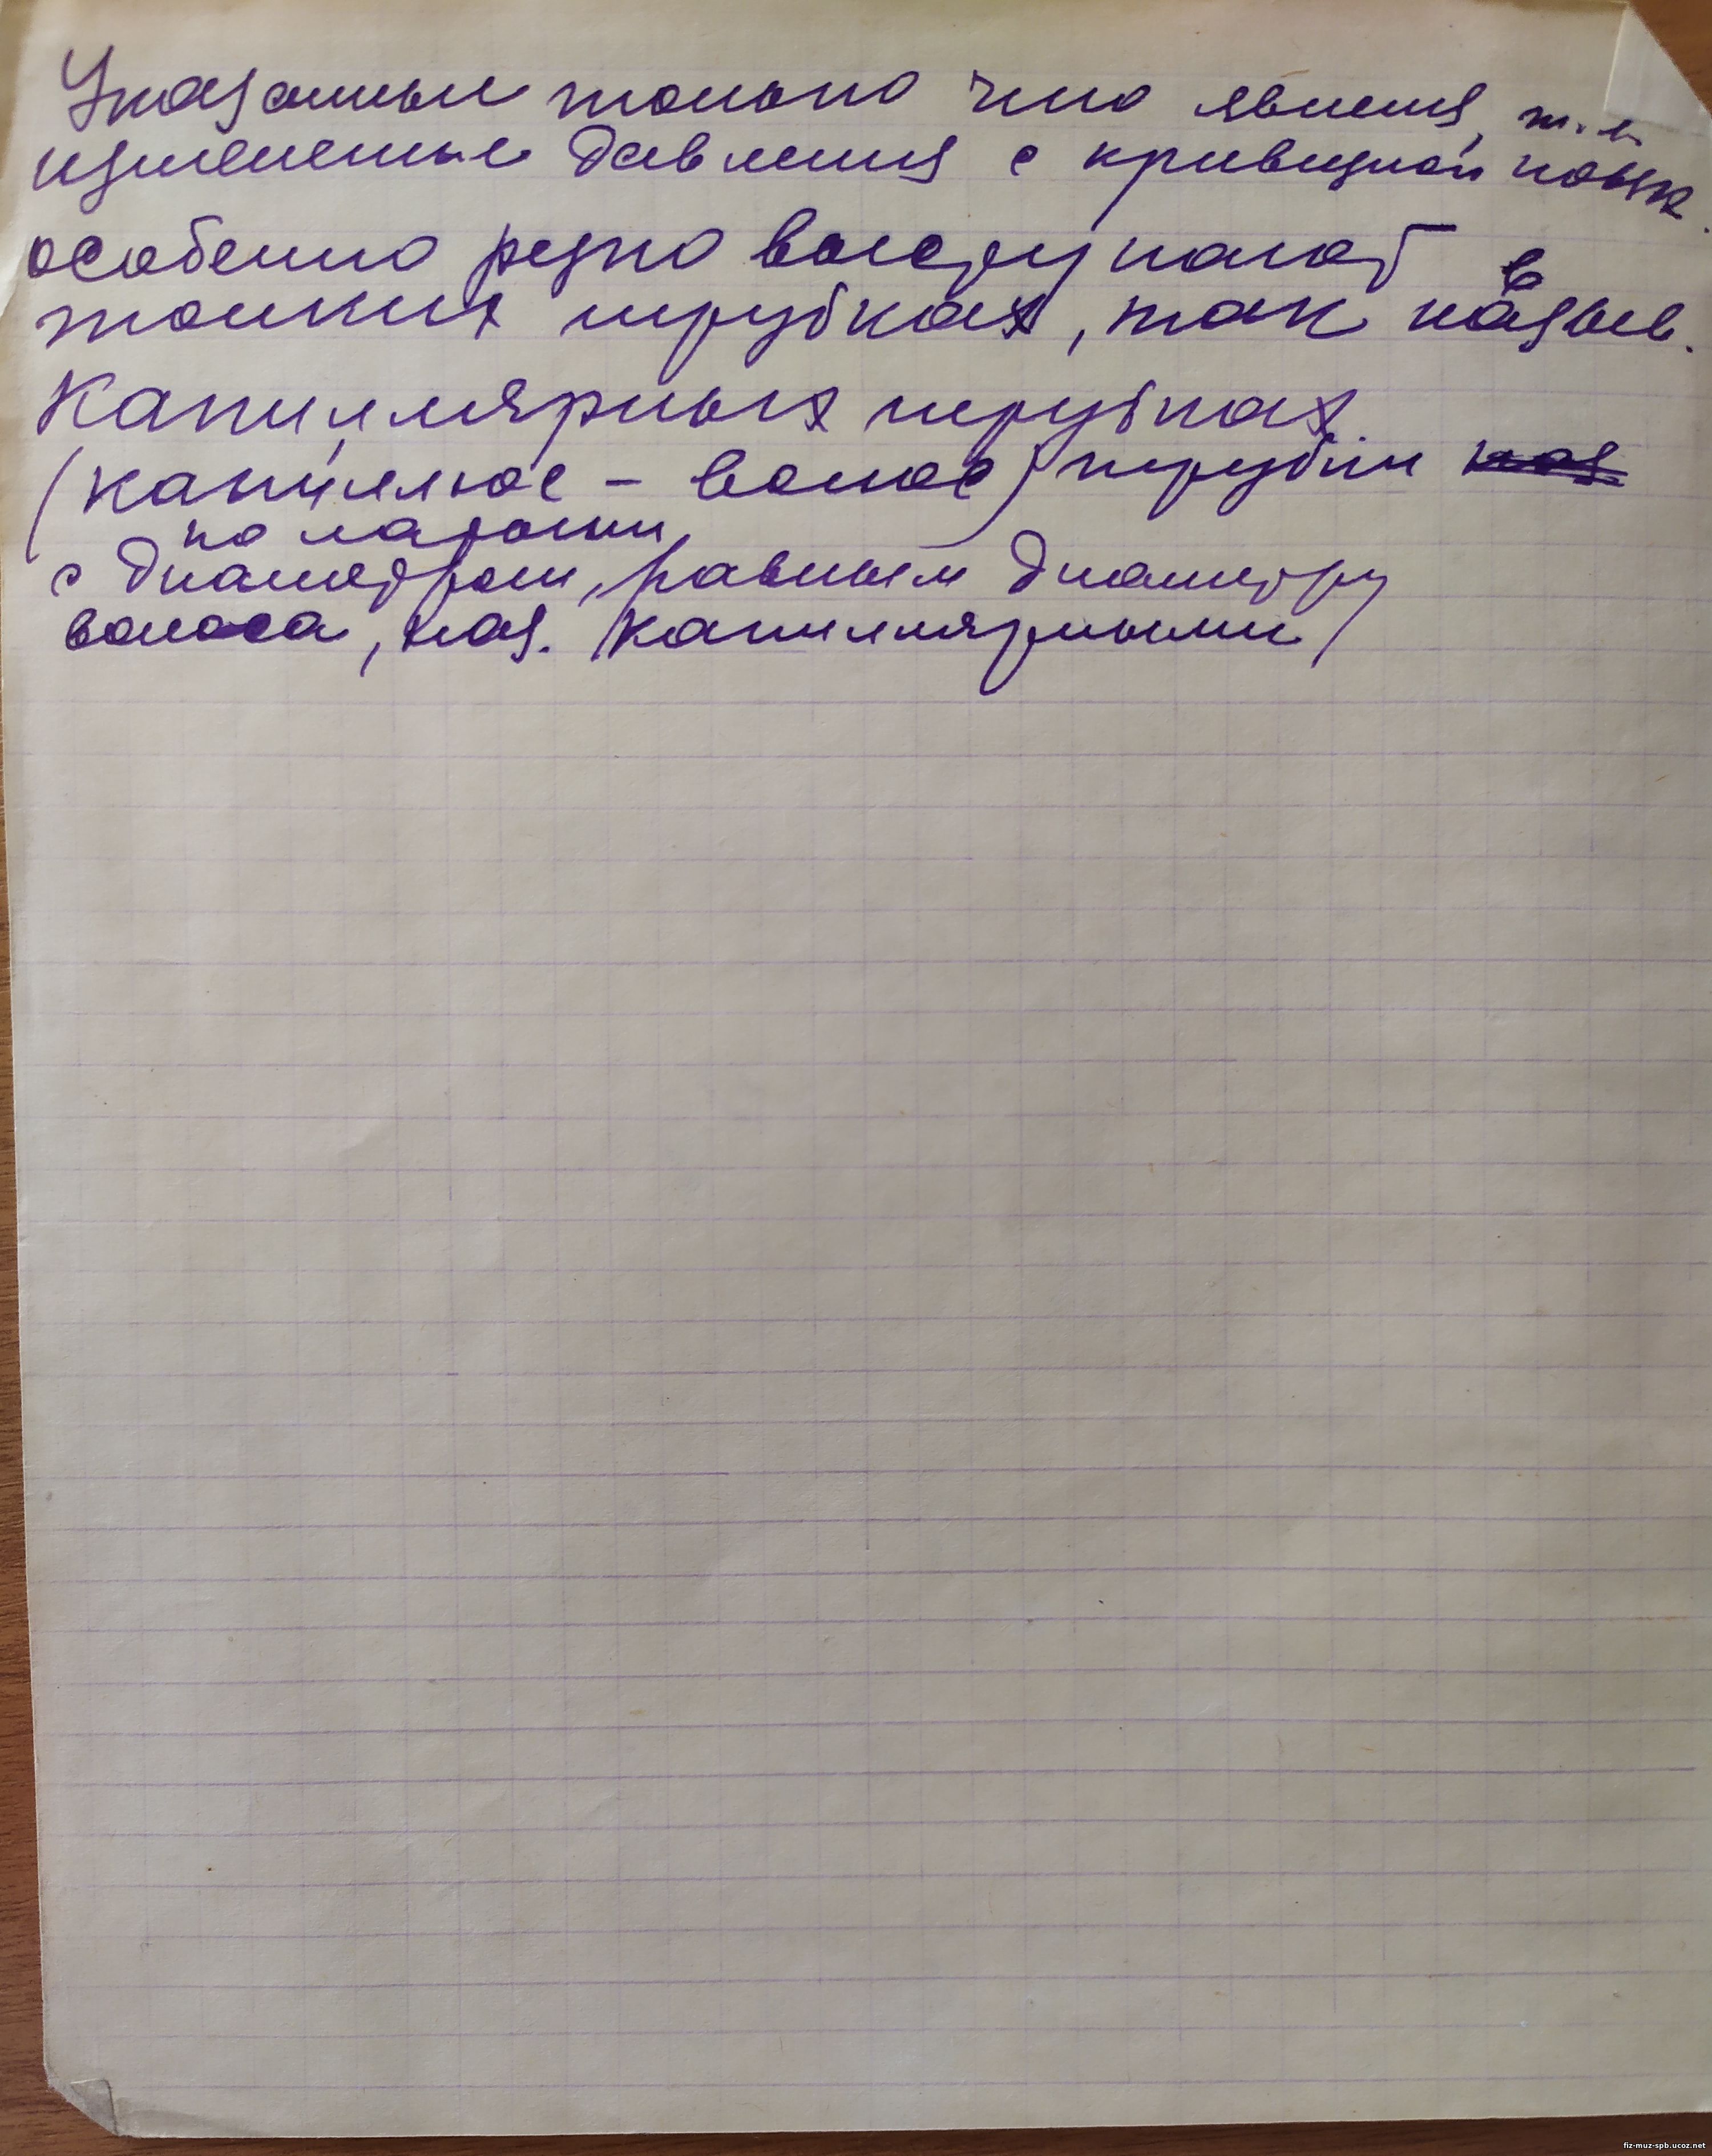 Указанные только что явления, т.е.
изменение давления с кривизной поверх.
особенно резко выступают в
тонких трубках, так назыв.
Капиллярных трубках
(капиллюс – волос) трубки наз.
по латыни
с диаметром, равным диаметру
волоса, наз. капиллярными)
fiz-muz-spb.ucoz.net